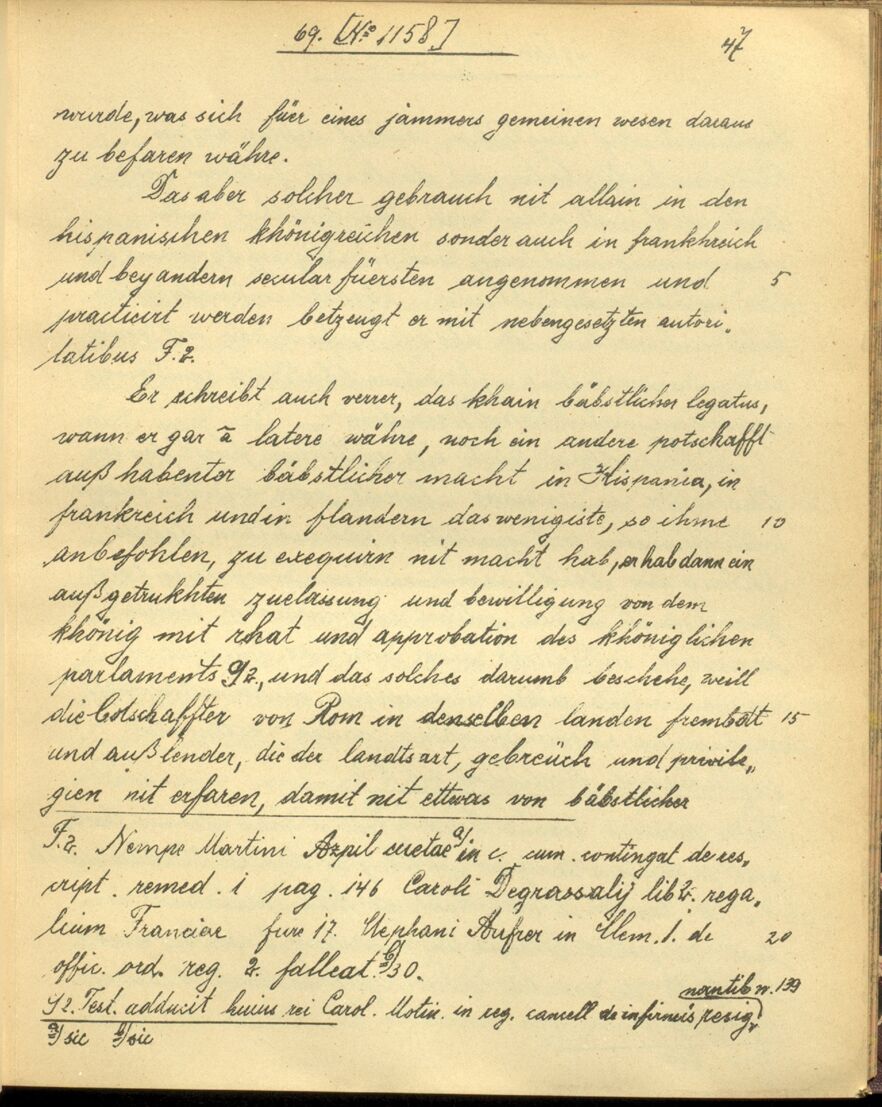 69. [No 1158]
47
wurde, was sich füer eines jammers gemeinen wesen daraus
zu befaren währe.
Das aber solcher gebrauch nit allain in den
hispanischen khönigreichen sonder auch in frankhreich
und bey andern secular füersten angenommen und 5
practicirt werden betzeugt er mit nebengesetzten autori„
tatibus F.2.
Er schreibt auch verrer, das khain bäbstlicher legatus,
wann er gar ã latere währe, noch ein andere potschafft
auß habenter bäbstlicher macht in Hispania, in
frankreich und in flandern das wenigiste, so ihme 10
anbefohlen, zu exequirn nit macht hab, er hab dann ein
außgetrukhten zuelassung und bewilligung von dem
khönig mit rhat und approbation des khöniglichen
parlaments G2., und das solches darumb beschehe, weill
die botschaffter von Rom in denselben landen frembdt 15
und außlender, die der landtsart, gebreüch und privile„
gien nit erfaren, damit nit ettwas von bäbstlicher
F.2. Nempe Martini Azpilcuetae a) in c. cum. contingat de res„
cript. remed. i pag. 146 Caroli Degrassalij lib 2. rega„
lium Franciae jure 17. Stephani Aufrer in Clem. 1. de 20
offic. ord. reg. 2. falleat. b) 30.
G2. Test. adducit huius rei Carol. Molin. in reg. cancell de infirmis resig„
nantib n. 139
a) sic b) sic